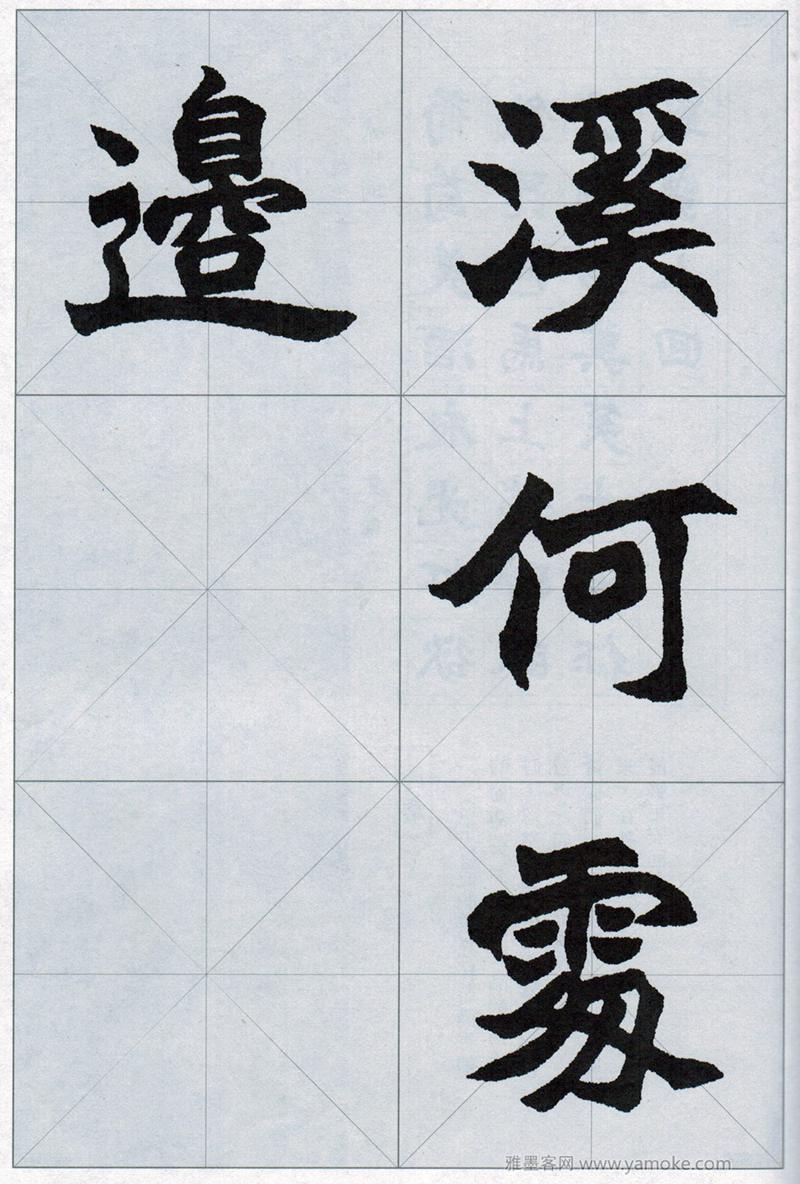 溪何處
邊
雅墨客网 www.yamoke.com